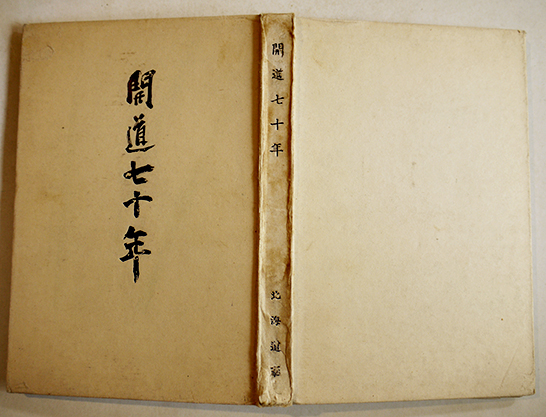 開道七十年
開道七十年
北海道廳